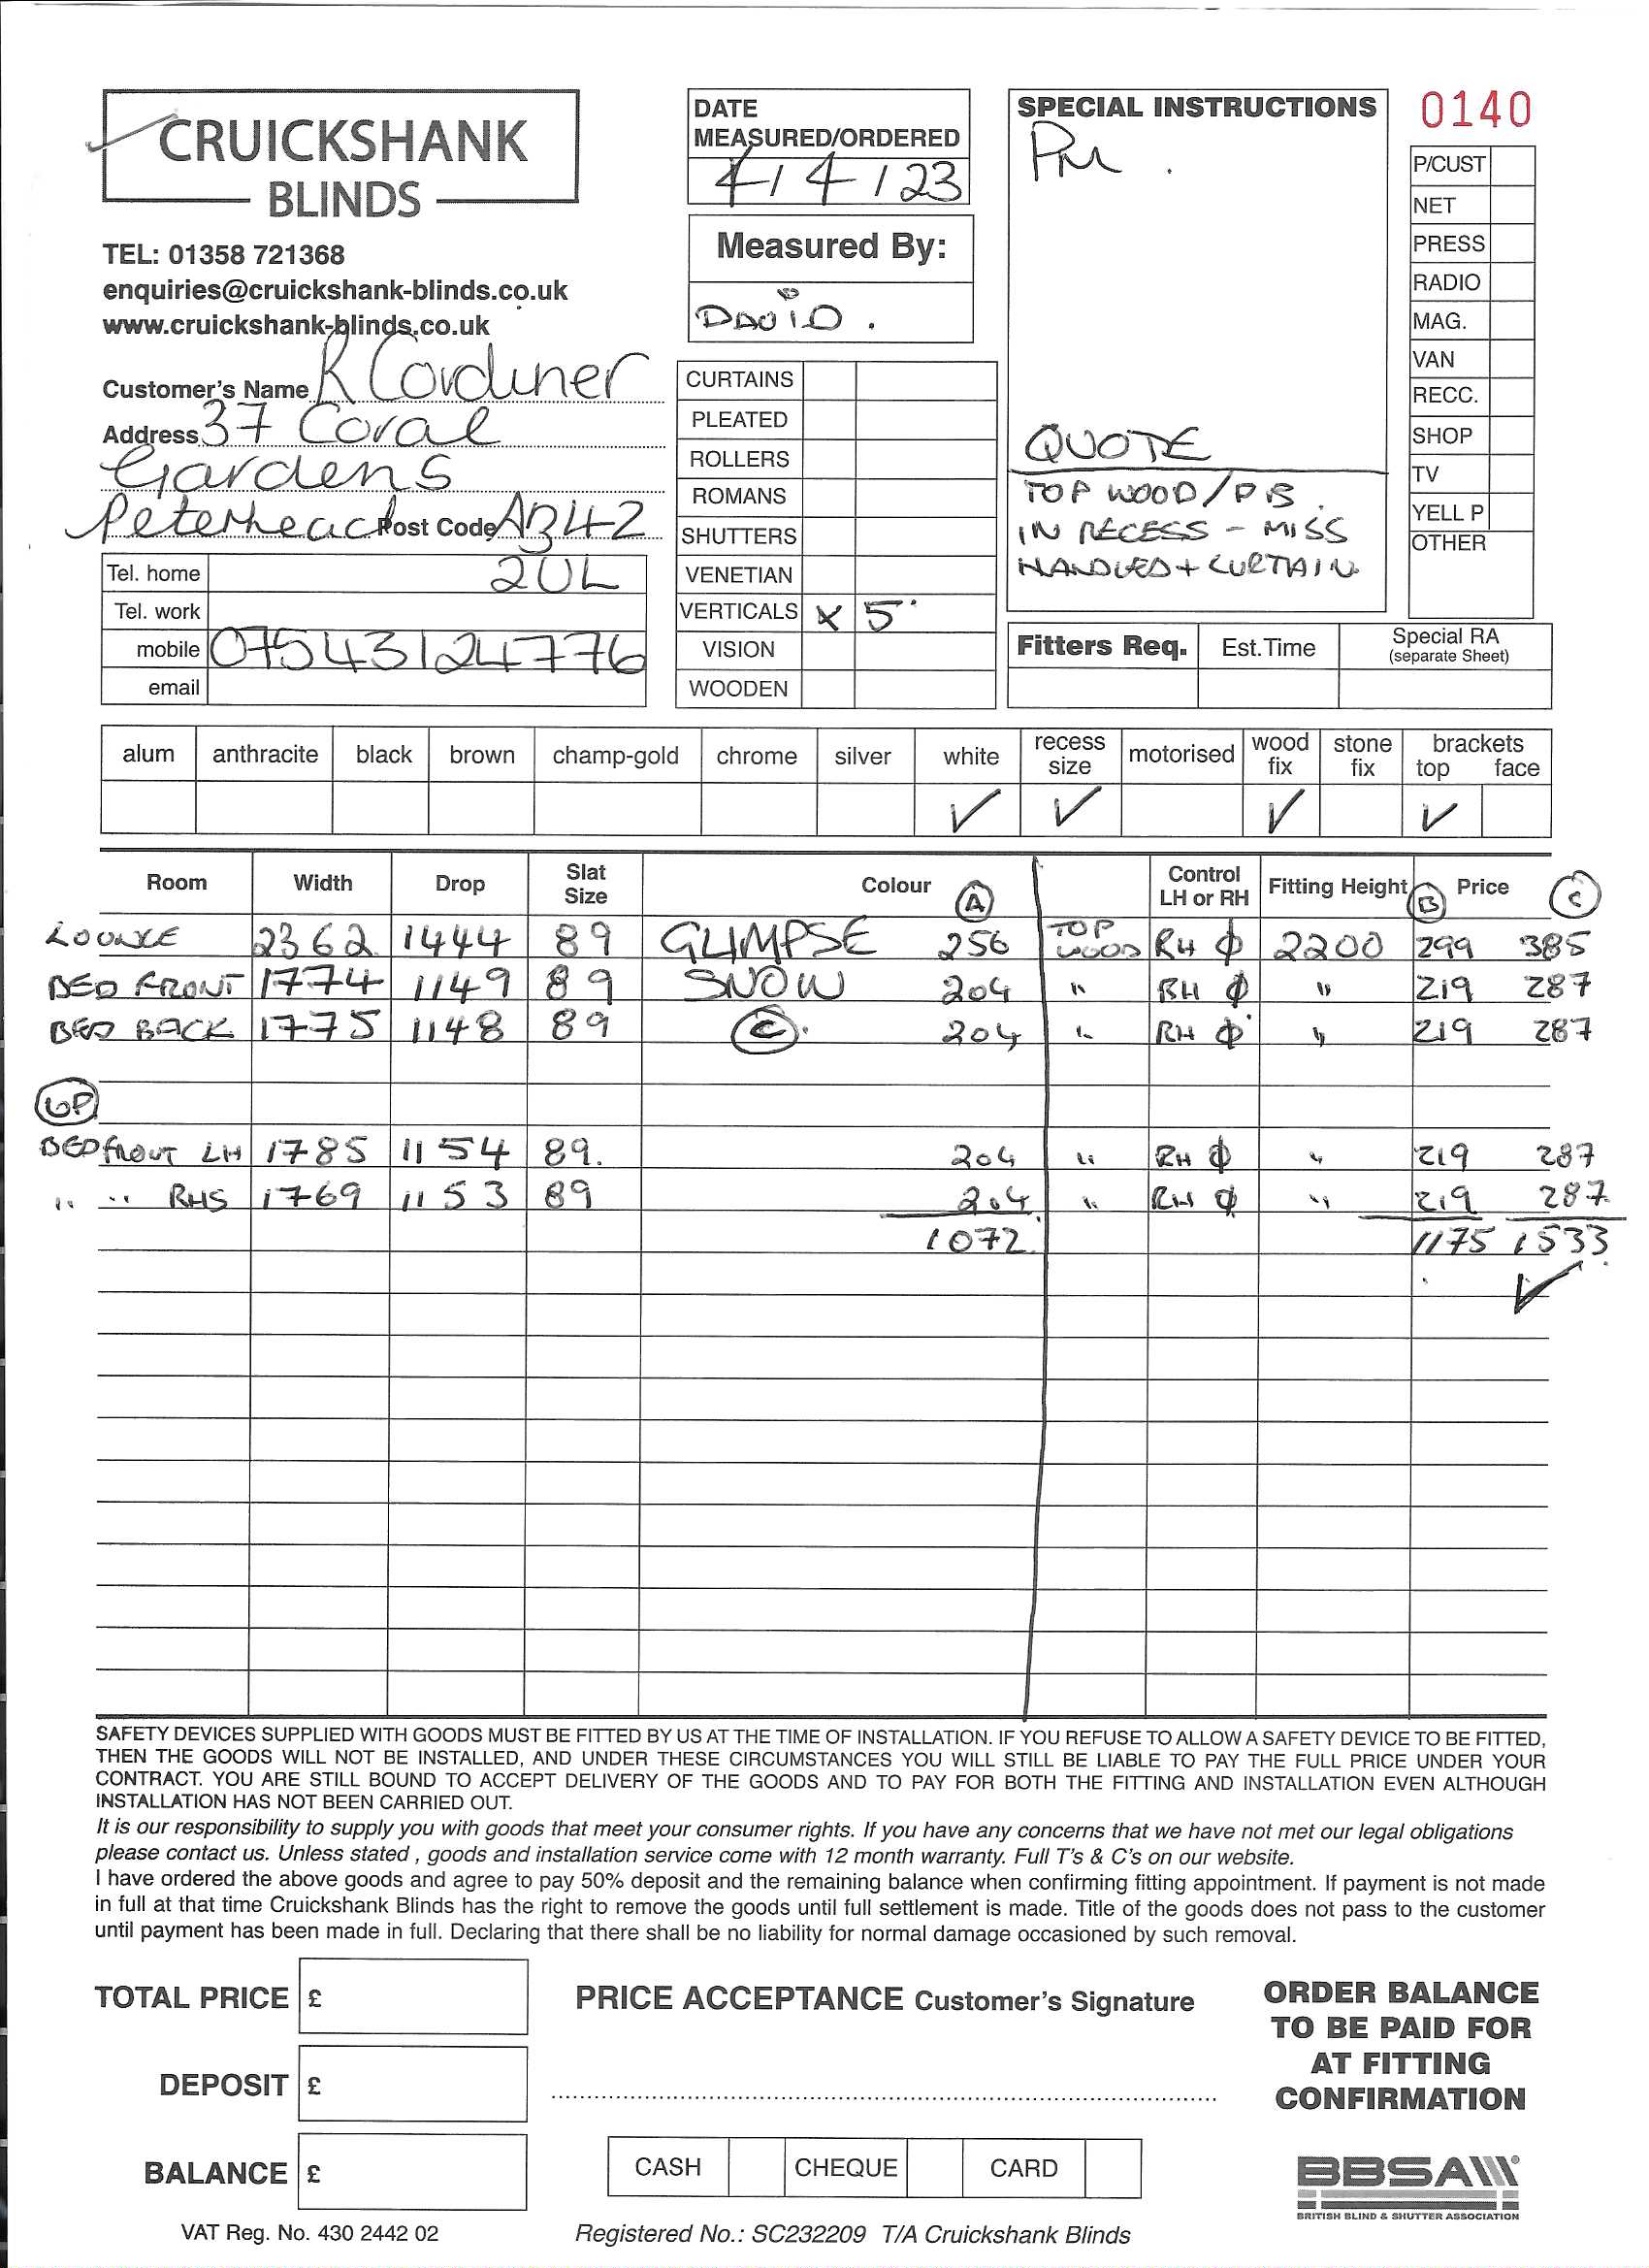 CRUICKSHANK
BLINDS
TEL: 01358 721368
enquiries@cruickshank-blinds.co.uk
www.cruickshank-blinds.co.uk
Customer's Name R Corduner
Address 37 Coral
Gardens
Peterhead Post Code AB42
Tel. home 2UL
Tel. work
mobile 07543124776
email
DATE
MEASURED/ORDERED
4/4/23
Measured By:
DAVID.
CURTAINS
PLEATED
ROLLERS
ROMANS
SHUTTERS
VENETIAN
VERTICALS X 5
VISION
WOODEN
SPECIAL INSTRUCTIONS
PM.
QUOTE
TOP WOOD/PB.
IN RECESS - MISS
HANDLES + CURTAIN.
0140
P/CUST
NET
PRESS
RADIO
MAG.
VAN
RECC.
SHOP
TV
YELL P
OTHER
Fitters Req. Est.Time Special RA
(separate Sheet)
alum anthracite black brown champ-gold chrome silver white recess size motorised wood fix stone fix brackets top face
✓ ✓ ✓ ✓
Room Width Drop Slat Size Colour A Control LH or RH Fitting Height B Price C
LOUNGE 2362 1444 89 GLIMPSE 256 TOP WOOD RH 2200 299 385
BED FRONT 1774 1149 89 SNOW 204 " RH " 219 287
BED BACK 1775 1148 89 C. 204 " RH " 219 287
UP
BED FRONT LH 1785 1154 89. 204 " RH " 219 287
" " RHS 1769 1153 89 204 " RH " 219 287
1072 1175 1533
✓
SAFETY DEVICES SUPPLIED WITH GOODS MUST BE FITTED BY US AT THE TIME OF INSTALLATION. IF YOU REFUSE TO ALLOW A SAFETY DEVICE TO BE FITTED,
THEN THE GOODS WILL NOT BE INSTALLED, AND UNDER THESE CIRCUMSTANCES YOU WILL STILL BE LIABLE TO PAY THE FULL PRICE UNDER YOUR
CONTRACT. YOU ARE STILL BOUND TO ACCEPT DELIVERY OF THE GOODS AND TO PAY FOR BOTH THE FITTING AND INSTALLATION EVEN ALTHOUGH
INSTALLATION HAS NOT BEEN CARRIED OUT.
It is our responsibility to supply you with goods that meet your consumer rights. If you have any concerns that we have not met our legal obligations
please contact us. Unless stated , goods and installation service come with 12 month warranty. Full T's & C's on our website.
I have ordered the above goods and agree to pay 50% deposit and the remaining balance when confirming fitting appointment. If payment is not made
in full at that time Cruickshank Blinds has the right to remove the goods until full settlement is made. Title of the goods does not pass to the customer
until payment has been made in full. Declaring that there shall be no liability for normal damage occasioned by such removal.
TOTAL PRICE £
DEPOSIT £
BALANCE £
PRICE ACCEPTANCE Customer's Signature
CASH CHEQUE CARD
ORDER BALANCE
TO BE PAID FOR
AT FITTING
CONFIRMATION
BBSA
BRITISH BLIND & SHUTTER ASSOCIATION
VAT Reg. No. 430 2442 02
Registered No.: SC232209 T/A Cruickshank Blinds